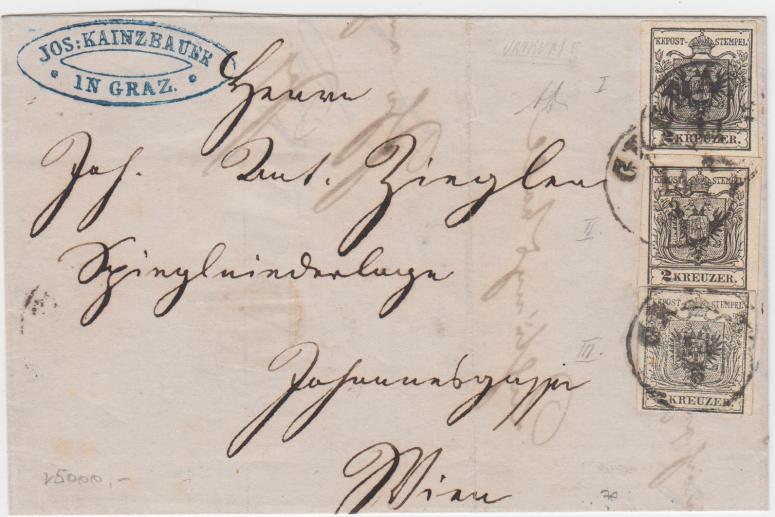 JOS: KAINZBAUER
IN GRAZ.
Herrn
Joh. Ant. Ziegler
Spieglniederlage
Johannesgasse
Wien
KKPOST-STEMPEL
2 KREUZER.
I
KKPOST-STEMPEL
2 KREUZER.
II.
KKPOST-STEMPEL
2 KREUZER.
III.
25000,-